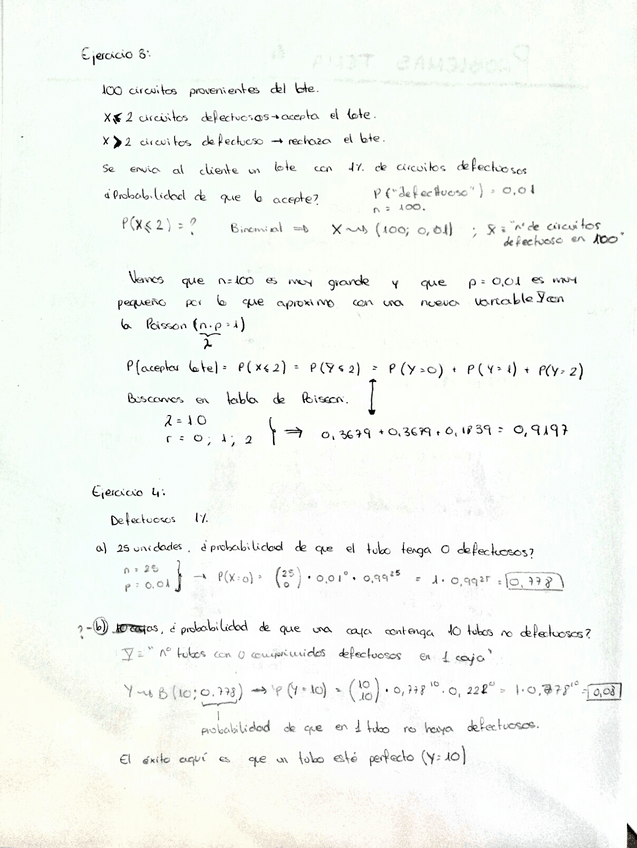 Ejercicio 3:
100 circuitos provenientes del lote.
X ≤ 2 circuitos defectuosos → acepta el lote.
X > 2 circuitos defectuoso → rechaza el lote.
Se envia al cliente un lote con 1% de circuitos defectuosos
¿Probabilidad de que lo acepte? P("defectuoso") = 0,01
n = 100.
P(X ≤ 2) = ? Binomial ⇒ X ~ (100; 0,01) ; X = "nº de circuitos
defectuoso en 100"
Vemos que n=100 es muy grande y que p = 0,01 es muy
pequeño por lo que aproximo con una nueva variable Y con
la Poisson (n·p = 1)
λ
P(aceptar lote) = P(X ≤ 2) = P(Y ≤ 2) = P(Y=0) + P(Y=1) + P(Y=2)
Buscamos en tabla de Poisson.
λ = 10
r = 0; 1; 2 } ⇒ 0,3679 + 0,3679 + 0,1839 = 0,9197
Ejercicio 4:
Defectuosos 1%
a) 25 unidades, ¿probabilidad de que el tubo tenga 0 defectuosos?
n = 25
p = 0.01 } → P(X=0) = (25 0) · 0,01⁰ · 0,99²⁵ = 1 · 0,99²⁵ = 0,778
?- b) cajas, ¿probabilidad de que una caja contenga 10 tubos no defectuosos?
Y = "nº tubos con 0 comprimidos defectuosos en 1 caja"
Y ~ B(10; 0,778) → P(Y=10) = (10 10) · 0,778¹⁰ · 0,222⁰ = 1 · 0,778¹⁰ = 0,08
probabilidad de que en 1 tubo no haya defectuosos.
El éxito aquí es que un tubo esté perfecto (Y=10)